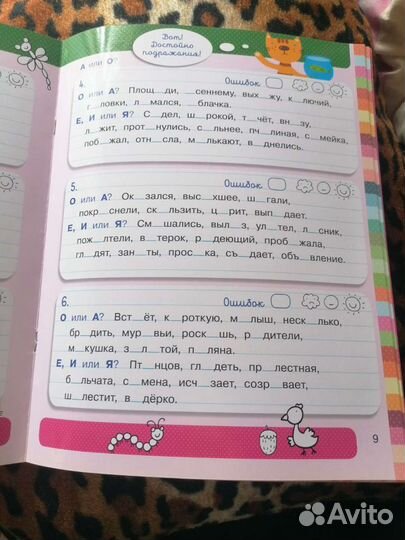 Вот!
Достойно
подражания!
А или О?
4.
Ошибок
О или А? Площ__ди, __сеннему, вых__жу, к__лючий,
г__ловки, л__мался, __блачка.
Е, И или Я? С__дел, ш__рокой, т__чёт, вн__зу,
л__жит, прот__нулись, с__льнее, пч__линая, с__мейка,
поб__жал, отн__сла, м__лькают, в__днелись.
5.
Ошибок
О или А? Ок__зался, выс__хшее, ш__гали,
покр__снели, ск__льзить, ц__рит, вып__дает.
Е, И или Я? См__шались, выл__з, ул__тел, л__сник,
пож__лтели, в__терок, р__деющий, проб__жала,
гл__дят, зан__ты, прос__ка, съ__дает, объ__вление.
6.
Ошибок
О или А? Вст__ёт, к__роткую, м__лыш, неск__лько,
бр__дить, мур__вьи, роск__шь, р__дители,
м__кушка, з__л__той, п__ляна.
Е, И или Я? Пт__нцов, гл__деть, пр__лестная,
б__льчата, с__мена, исч__зает, созр__вает,
ш__лестит, в__дёрко.
9
Avito